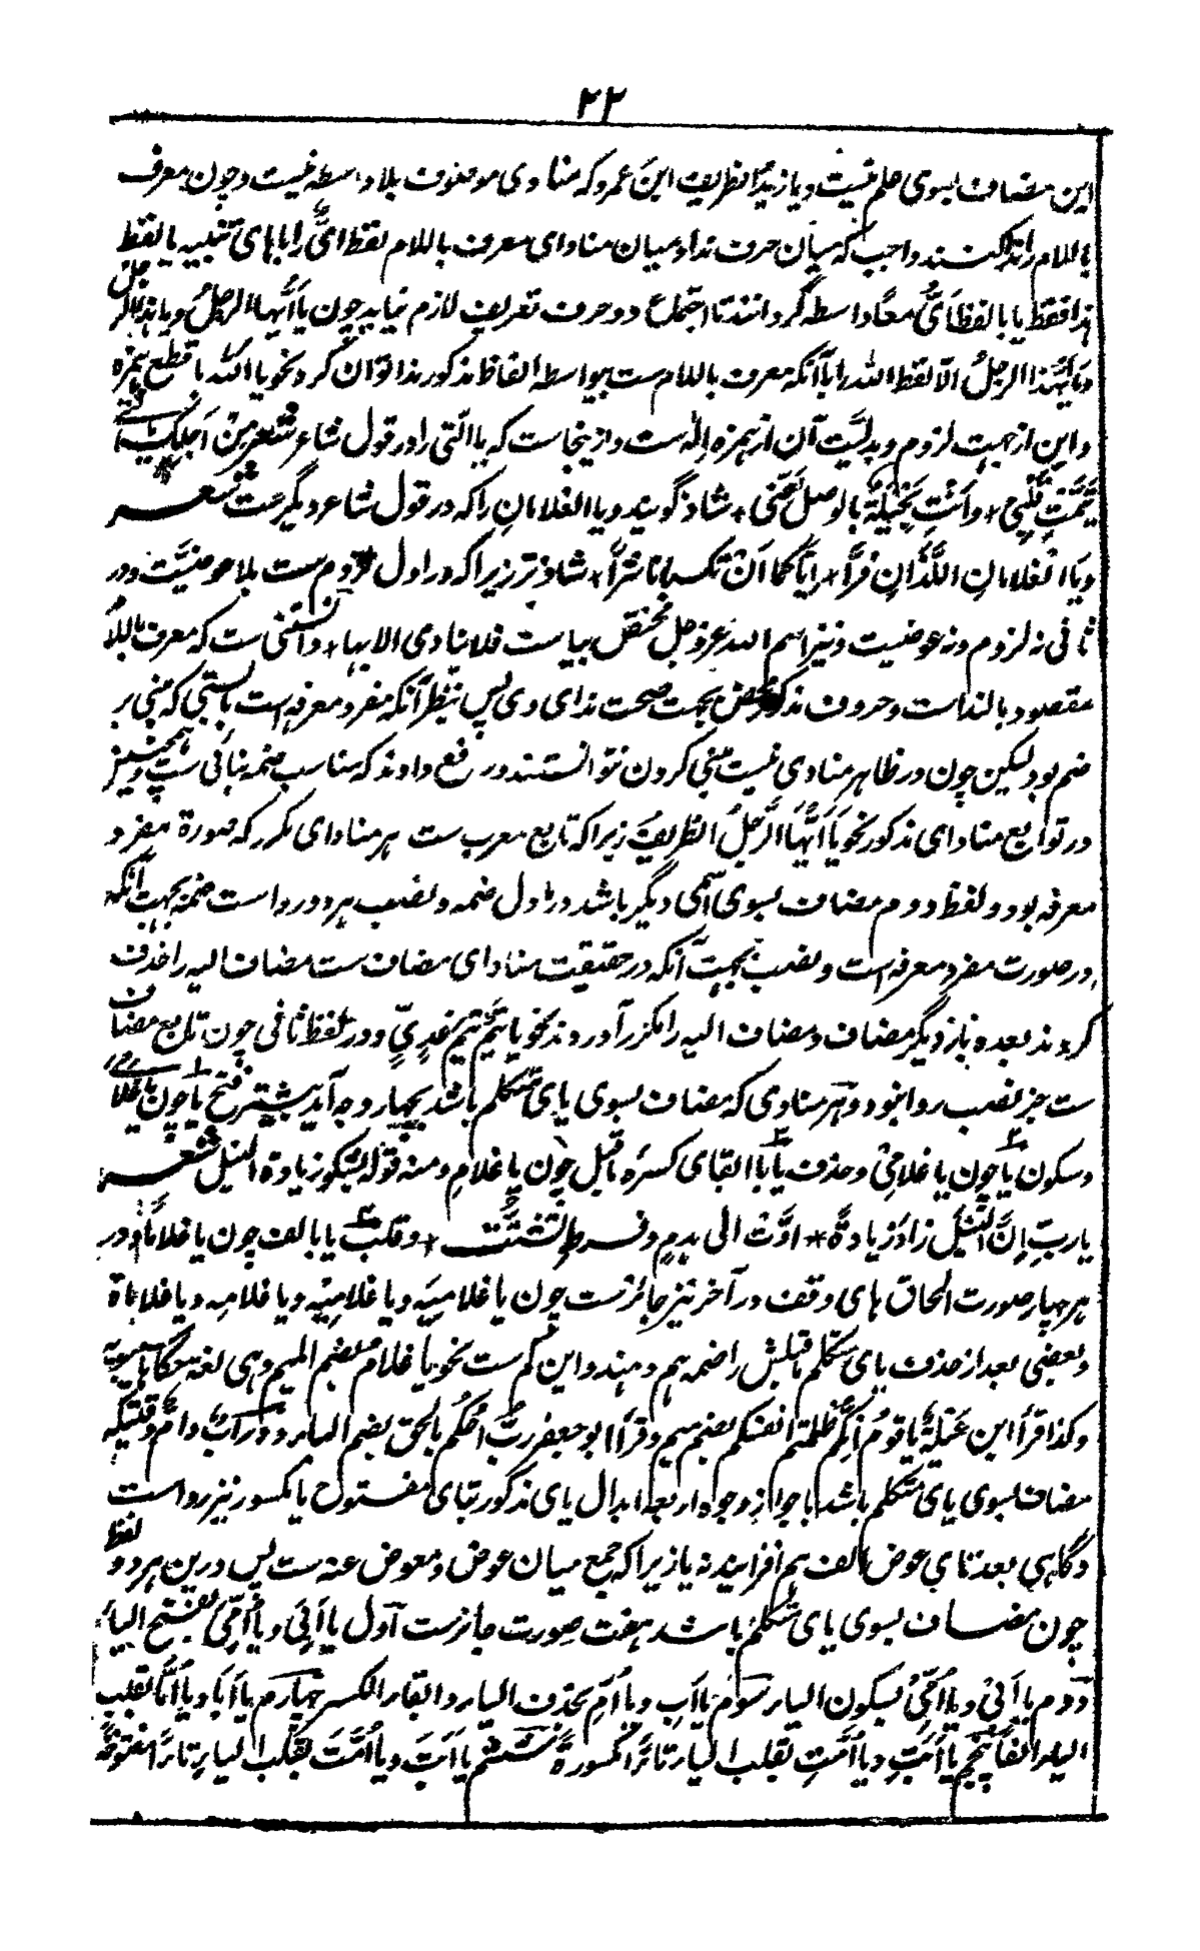 ۲۲
این مضاف بسوی علم نیست و یا زیدُ الظریف ابنَ عمرو که مناوی موصوف بلا واسطه نیست و چون معرف
باللام را ندا کنند واجب که میان حرف ندا و میان منادای معرف باللام لفظ ایُّ را با های تنبیه یا لفظ
هذا فقط یا با لفظ اَیُّ معاً واسطه گردانند تا اجتماع دو حرف تعریف لازم نیاید چون یا اَیُّها الرجلُ و یا هذا الرجلُ
و یا اَیُّهذا الرجلُ الّا لفظ الله را با آنکه معرف باللام ست بیواسطه الفاظ مذکور ندا توان کرد نحو یا اَلله با قطع همزه
و این از جهت لزوم و بدلیَّت آن از همزه اِله ست و ازینجاست که یا الّتی را در قول شاعر شعر مِنْ اَجلِکِ یا الَّتی
تَیَّمْتِ قَلْبِی * و اَنْتِ بَخِیْلَةٌ بالوصل عَنّی * شاذ گویند و یا الغلامانِ را که در قول شاعر دیگرست شعر
و یَا الغلامانِ اللَّذَانِ فَرَّا * اِیَّاکُما اَنْ تکسبانا شرّاً * شاذ تر زیرا که در اول لزوم ست بلا عوضیَّت و در
ثانی نه لزوم و نه عوضیت و نیز اسم الله عز و جل مختص بیاست فلا ینادی الا بها * دانستنی است که معرف باللام
مقصود بالنداست و حروف مذکور محض بجهت صحت ندای وی پس بنظر آنکه مفرد معرفه است بایستی که مبنی بر
ضم بود لیکن چون در ظاهر منادی نیست مبنی کردن نتوانستند و رفع دادند که مناسب ضمه بنائی ست و همچنین
در توابع منادای مذکور نحو یَا اَیُّهَا الرَّجلُ الظریفُ زیرا که تابع معرب ست هر منادای مکرر که صورة مفرد
معرفه بود و لفظ دوم مضاف بسوی اسمی دیگر باشد در اول ضمه و نصب هر دو رواست ضمه بجهت آنکه
در صورت مفرد معرفه است و نصب بجهت آنکه در حقیقت منادای مضاف ست مضاف الیه را حذف
کردند بعده باز دیگر مضاف و مضاف الیه را مکرر آوردند نحو یا تیم تیمَ عَدِیٍّ و در لفظ ثانی چون تابع مضاف
ست جز نصب روا نبود و هر منادی که مضاف بسوی یای متکلم باشد بچهار وجه آید بیشتر فتح یا چون یا غلامیَ
و سکون یا چون یا غلامِیْ و حذف یا با ابقای کسره ماقبل چون یا غلامِ و منه قوله یشکو زیادة النیل شعر
یا ربِّ اِنَّ النِّیْلَ زَادَ زِیَادةً * اوَّت الی بدمٍ و فرط تشتّت * و قلب یا بالف چون یا غلاما و در
هر چهار صورت الحاق های وقف در آخر نیز جائزست چون یا غلامیَه و یا غلامِیْه و یا غلامِه و یا غلاماه
و بعضی بعد از حذف یای متکلم ماقبلش را ضمه هم دهند و این کم ست نحو یا غلامُ بضم المیم و هی لغه حکاها سیبویه
و کذا قرأ ابن عَبْلَةَ یا قومُ اِنکُم ظلمتم انفسکم بضم میم و قرأ ابو جعفر ربُّ احْکُم بالحق بضم الباء و در اَبٌ و اُمٌّ وقتیکه
مضاف بسوی یای متکلم باشد با جواز وجوه اربعه ابدال یای مذکور بتای مفتوح یا مکسور نیز رواست
و گاهی بعد تای عوض الف هم افزایند نه یا زیرا که جمع میان عوض و معوض عنه ست پس درین هر دو لفظ
چون مضاف بسوی یای متکلم باشد هفت صورت جائزست اول یا اَبِیَ و یا اُمِّیَ بفتح الیاء
دوم یا اَبِیْ و یا اُمِّیْ بسکون الیاء سوم یا اَبِ و یا اُمِّ بحذف الیاء و القاء الکسر چهارم یا اَبَا و یا اُمَّا بقلب
الیاء الفاً پنجم یا اَبَتِ و یا اُمَّتِ بقلب الیاء تاءً مکسورةً ششم یا اَبَتَ و یا اُمَّتَ بقلب الیاء تاءً مفتوحةً